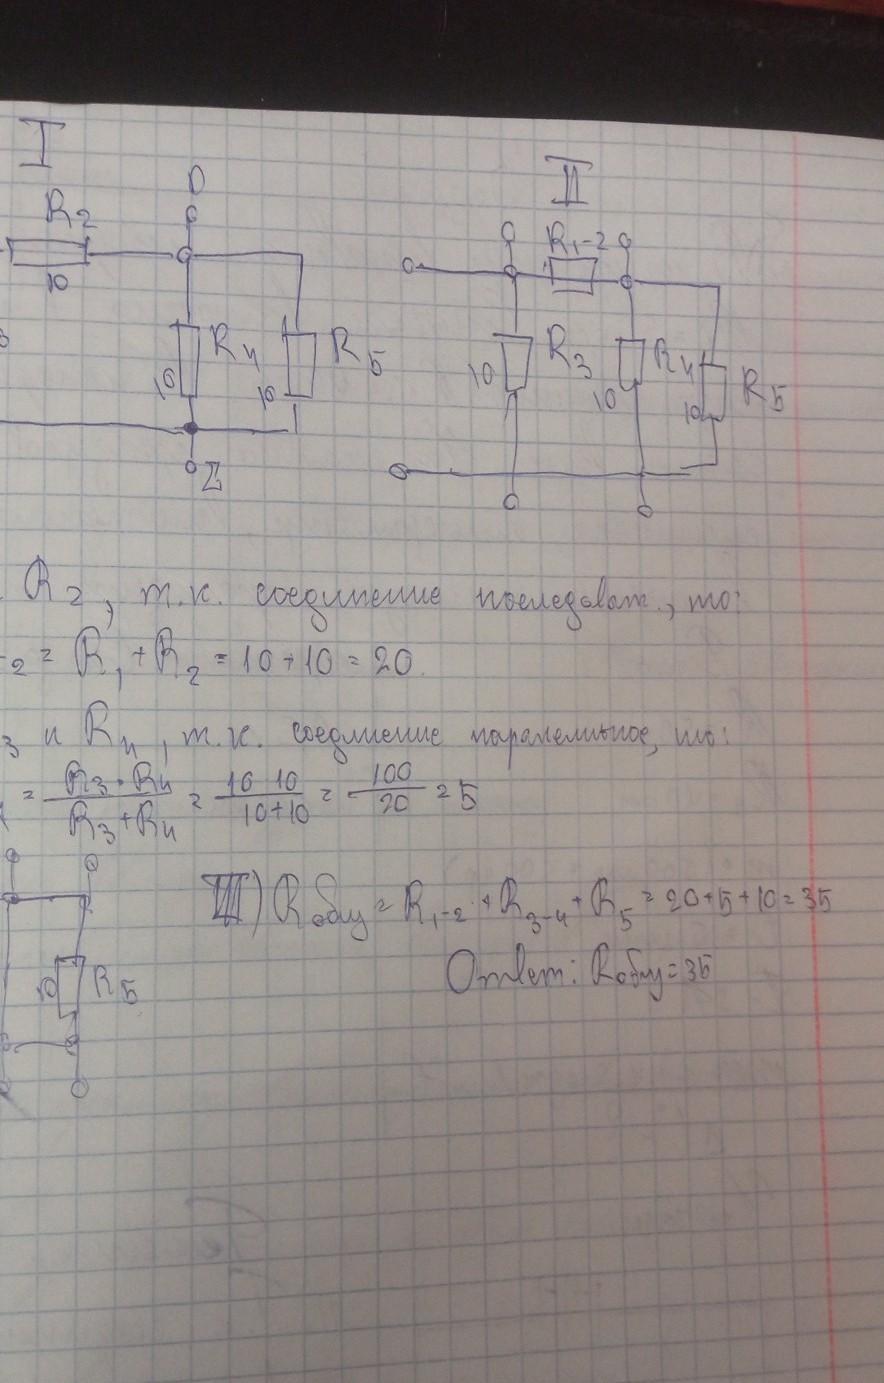 I
R2
10
D
R4
10
R5
10
Z
II
R1-2
R3
10
R4
10
R5
10
R2, т.к. соединение последоват., то:
-2 = R1 + R2 = 10 + 10 = 20.
3 и R4, т.к. соединение паралельное, то:
= R3 · R4 / R3 + R4 = 10 10 / 10+10 = 100 / 20 = 5
III) Rобщ = R1-2 + R3-4 + R5 = 20+5+10=35
Ответ: Rобщ=35
10 R5